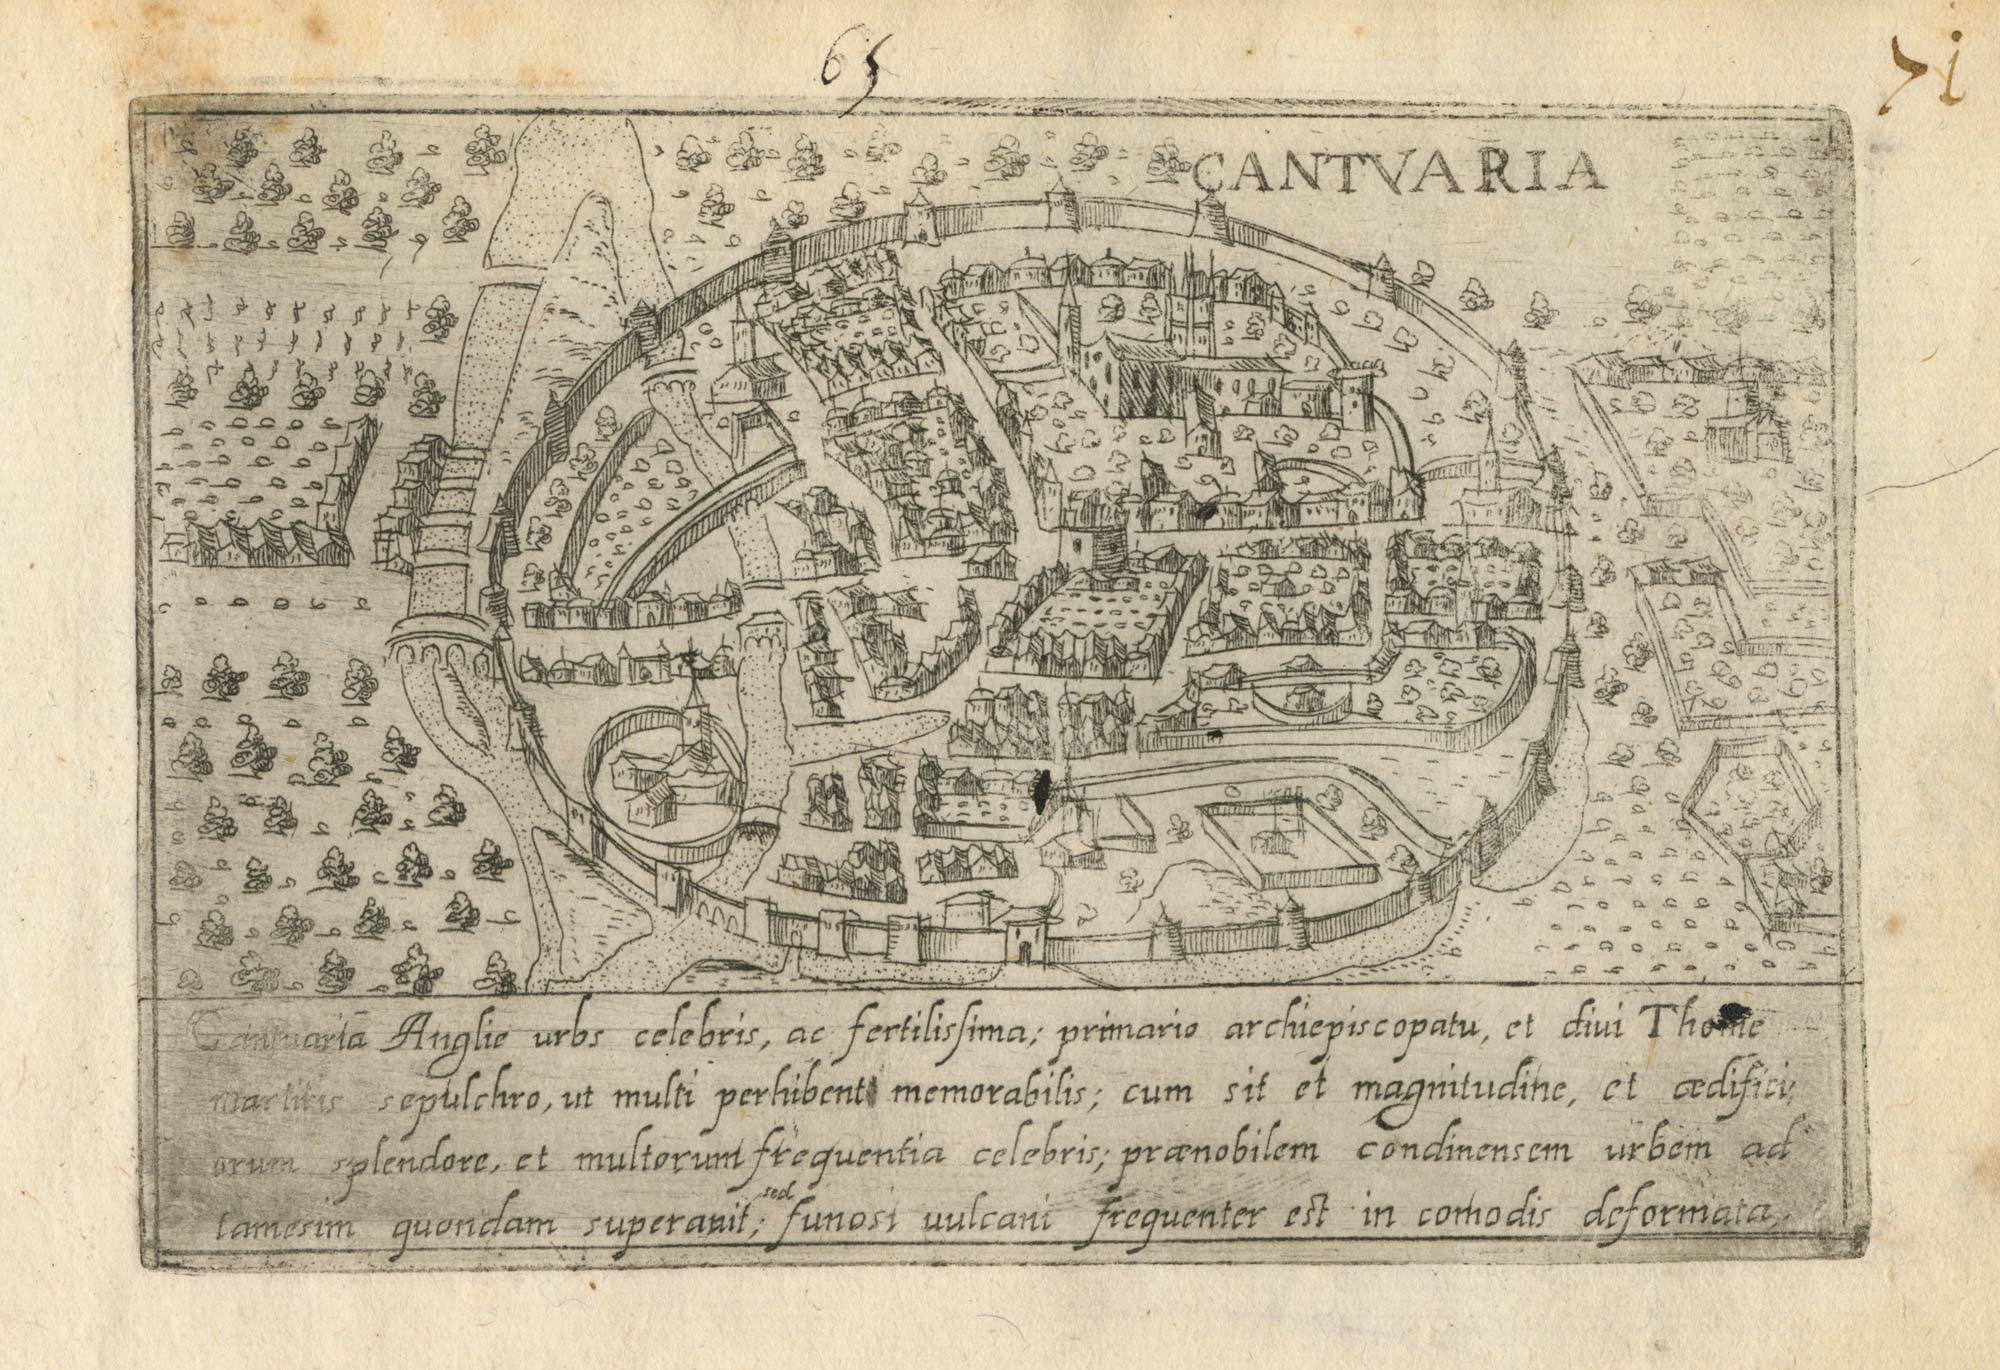 65
71
CANTVARIA
Cantuariā Anglie urbs celebris, ac fertilissima; primario archiepiscopatu, et diui Thome
martiris sepulchro, ut multi perhibent memorabilis; cum sit et magnitudine, et ædifici;
orum splendore, et multorum frequentia celebris; prænobilem condinensem urbem ad
tamesim quondam superauit; sed funosi uulcani frequenter est in comodis deformata,